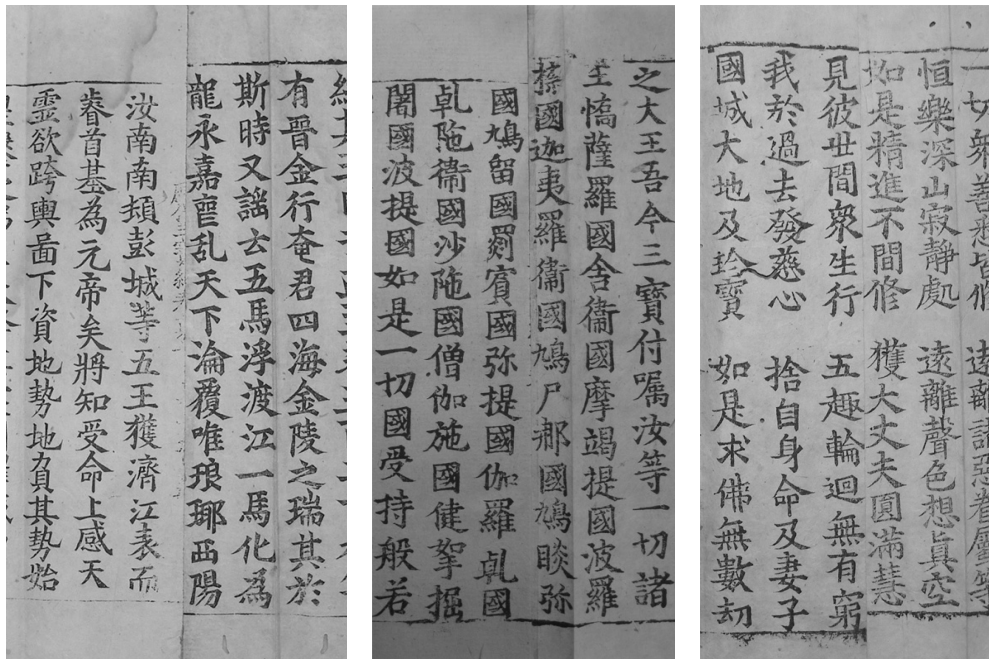 有晋金行奄君四海金陵之瑞其於
斯時又謡云五馬浮渡江一馬化為
龍永嘉䘮乱天下淪覆唯琅瑘西陽
汝南南頓彭城等五王獲濟江表而
睿首基為元帝矣將知受命上感天
霊欲跨輿啚下資地勢地負其勢始
之大王吾今三寶付嘱汝等一切諸
王憍薩羅國舎衞國摩竭提國波羅
㮈國迦夷羅衞國鳩尸那國鳩睒弥
國鳩留國罽賓國弥提國伽羅乹國
乹陁衞國沙陁國僧伽施國健挐掘
闍國波提國如是一切國受持般若
一切衆善悉皆修　遠離諸惡眷屬等
恒樂深山寂静處　遠離聲色想真空
如是精進不間修　獲大丈夫圓滿慧
見彼世間衆生行　五趣輪迴無有窮
我於過去發慈心　捨自身命及妻子
國城大地及珎寶　如是求佛無數刧